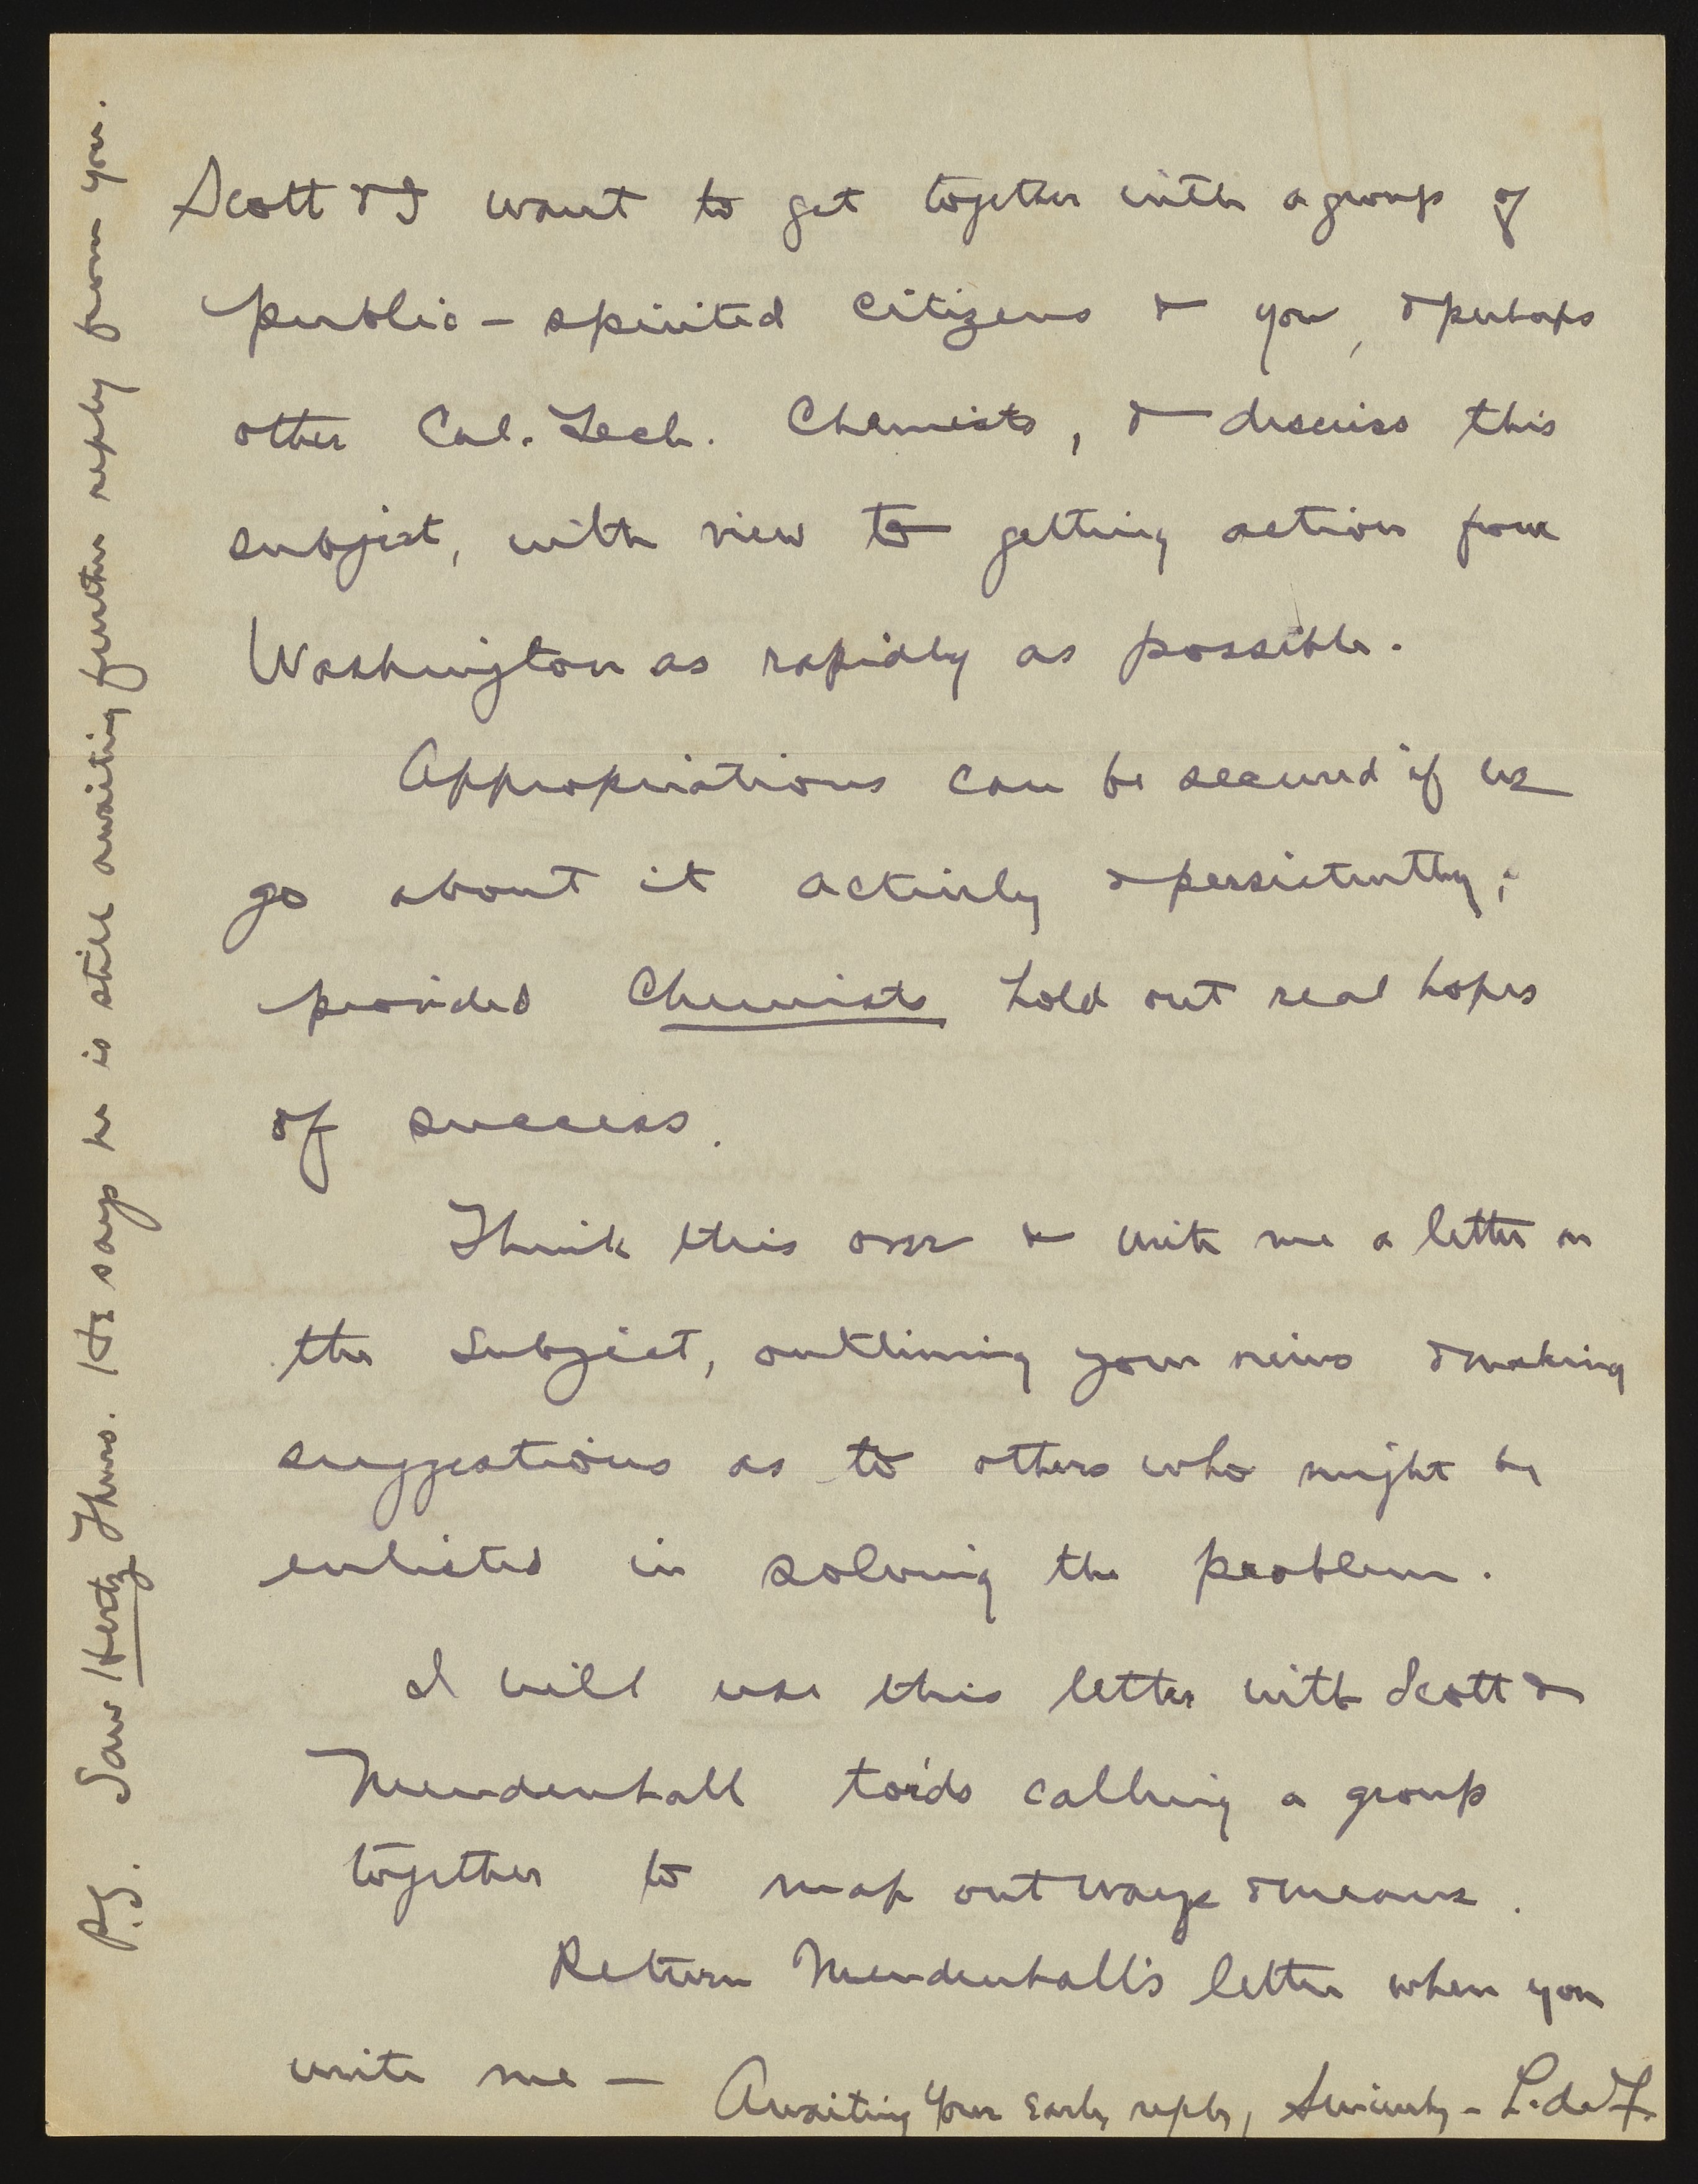 Scott & I want to get together with a group of
public-spirited citizens & you, & perhaps
other Cal. Tech. Chemists, & discuss this
subject, with view to getting action from
Washington as rapidly as possible.
Appropriations can be secured if we
go about it actively & persistently;
provided Chemists hold out real hopes
of success.
Think this over & write me a letter on
the subject, outlining your views & making
suggestions as to others who might be
enlisted in solving the problem.
I will use this letter with Scott &
Mendenhall to'ds calling a group
together to map out ways & means.
Return Mendenhall's letter when you
write me — Awaiting your early reply, Sincerely - L. de F.
P.S. Saw Hertz Thurs. He says he is still awaiting further reply from you.